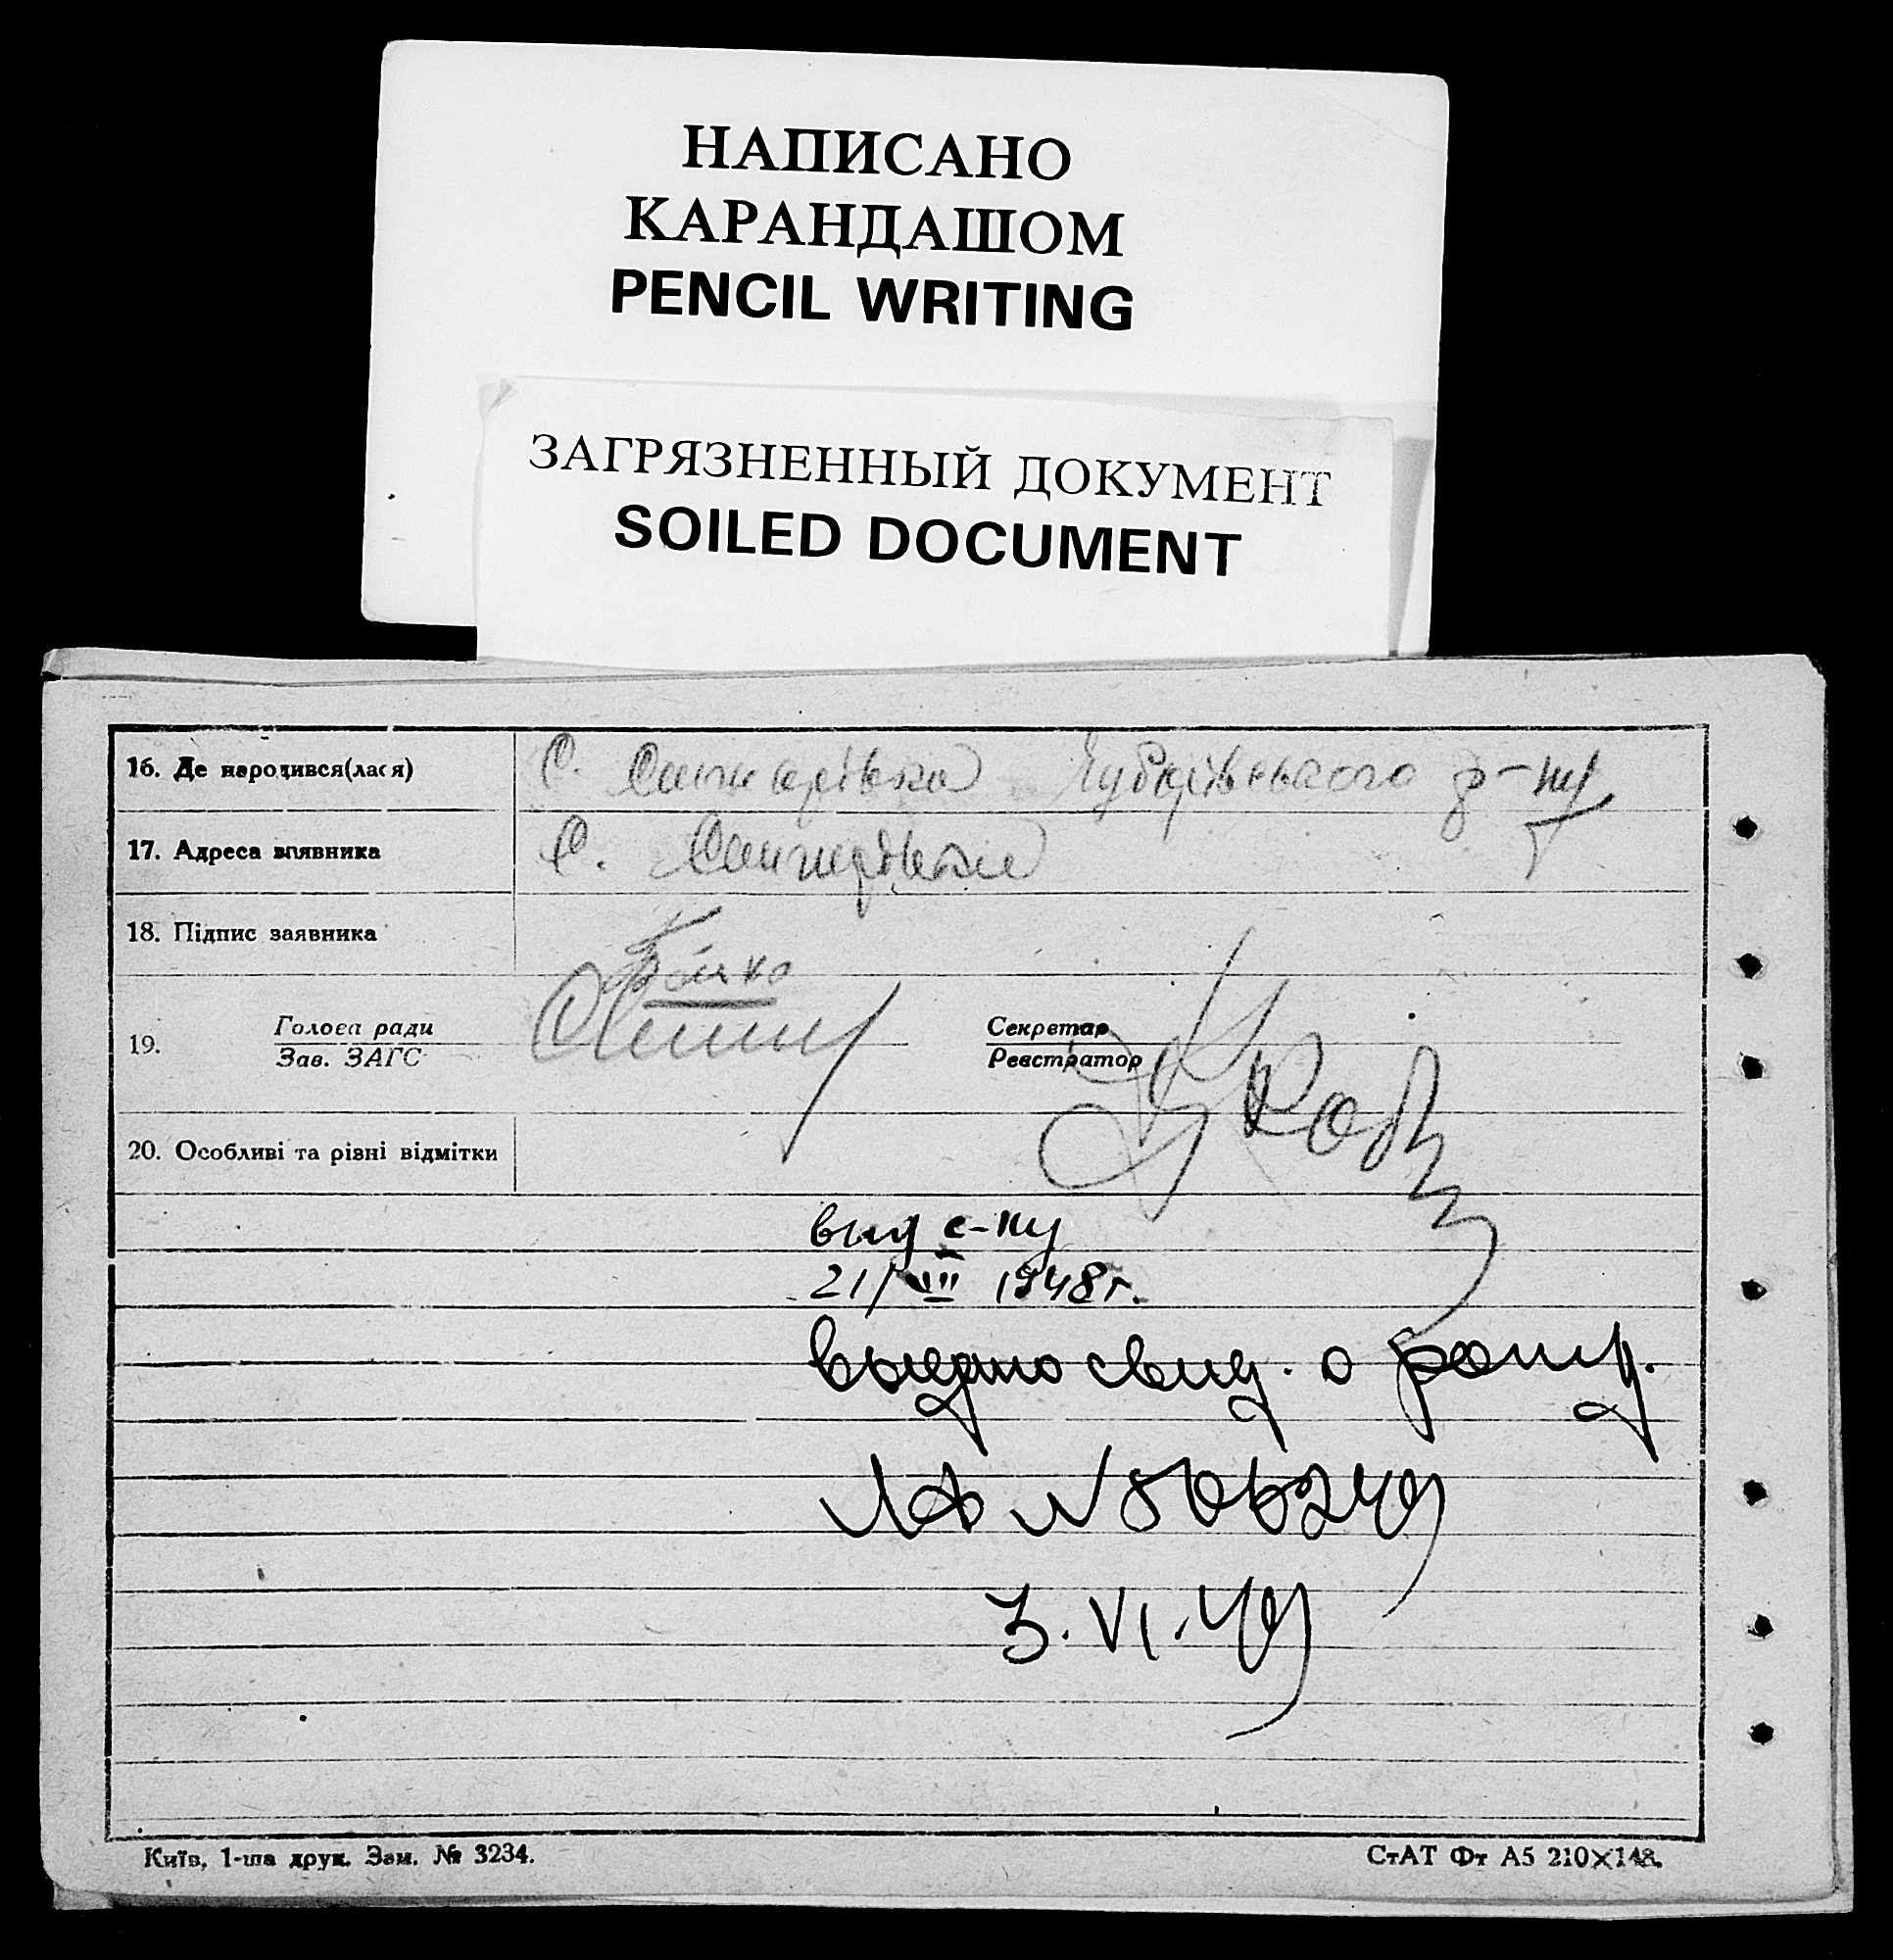 НАПИСАНО
КАРАНДАШОМ
PENCIL WRITING
ЗАГРЯЗНЕННЫЙ ДОКУМЕНТ
SOILED DOCUMENT
16. Де народився(лася) С. р-ну
17. Адреса заявника С.
18. Підпис заявника
19. Голова ради Секретар
Зав. ЗАГС Реєстратор
20. Особливі та різні відмітки
выд с-ку
21/VII 1948г.
выдано свид. о рожд.
№ 506249
3.VI.49
Київ, 1-ша друк. Зам. № 3234.
СтАТ Фт А5 210×148.